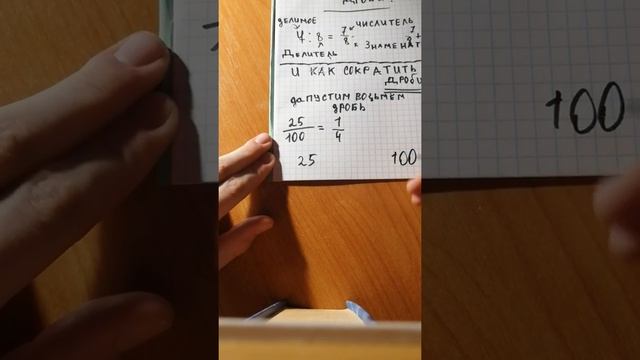 делимое ЧИСЛИТЕЛЬ
Ч : 8 = 7/8
Делитель ЗНАМЕНАТ
И КАК СОКРАТИТЬ
ДРОБИ
дАПУСТИМ ВОЗЬМЕМ
ДРОБЬ
25/100 = 1/4
25 100
100